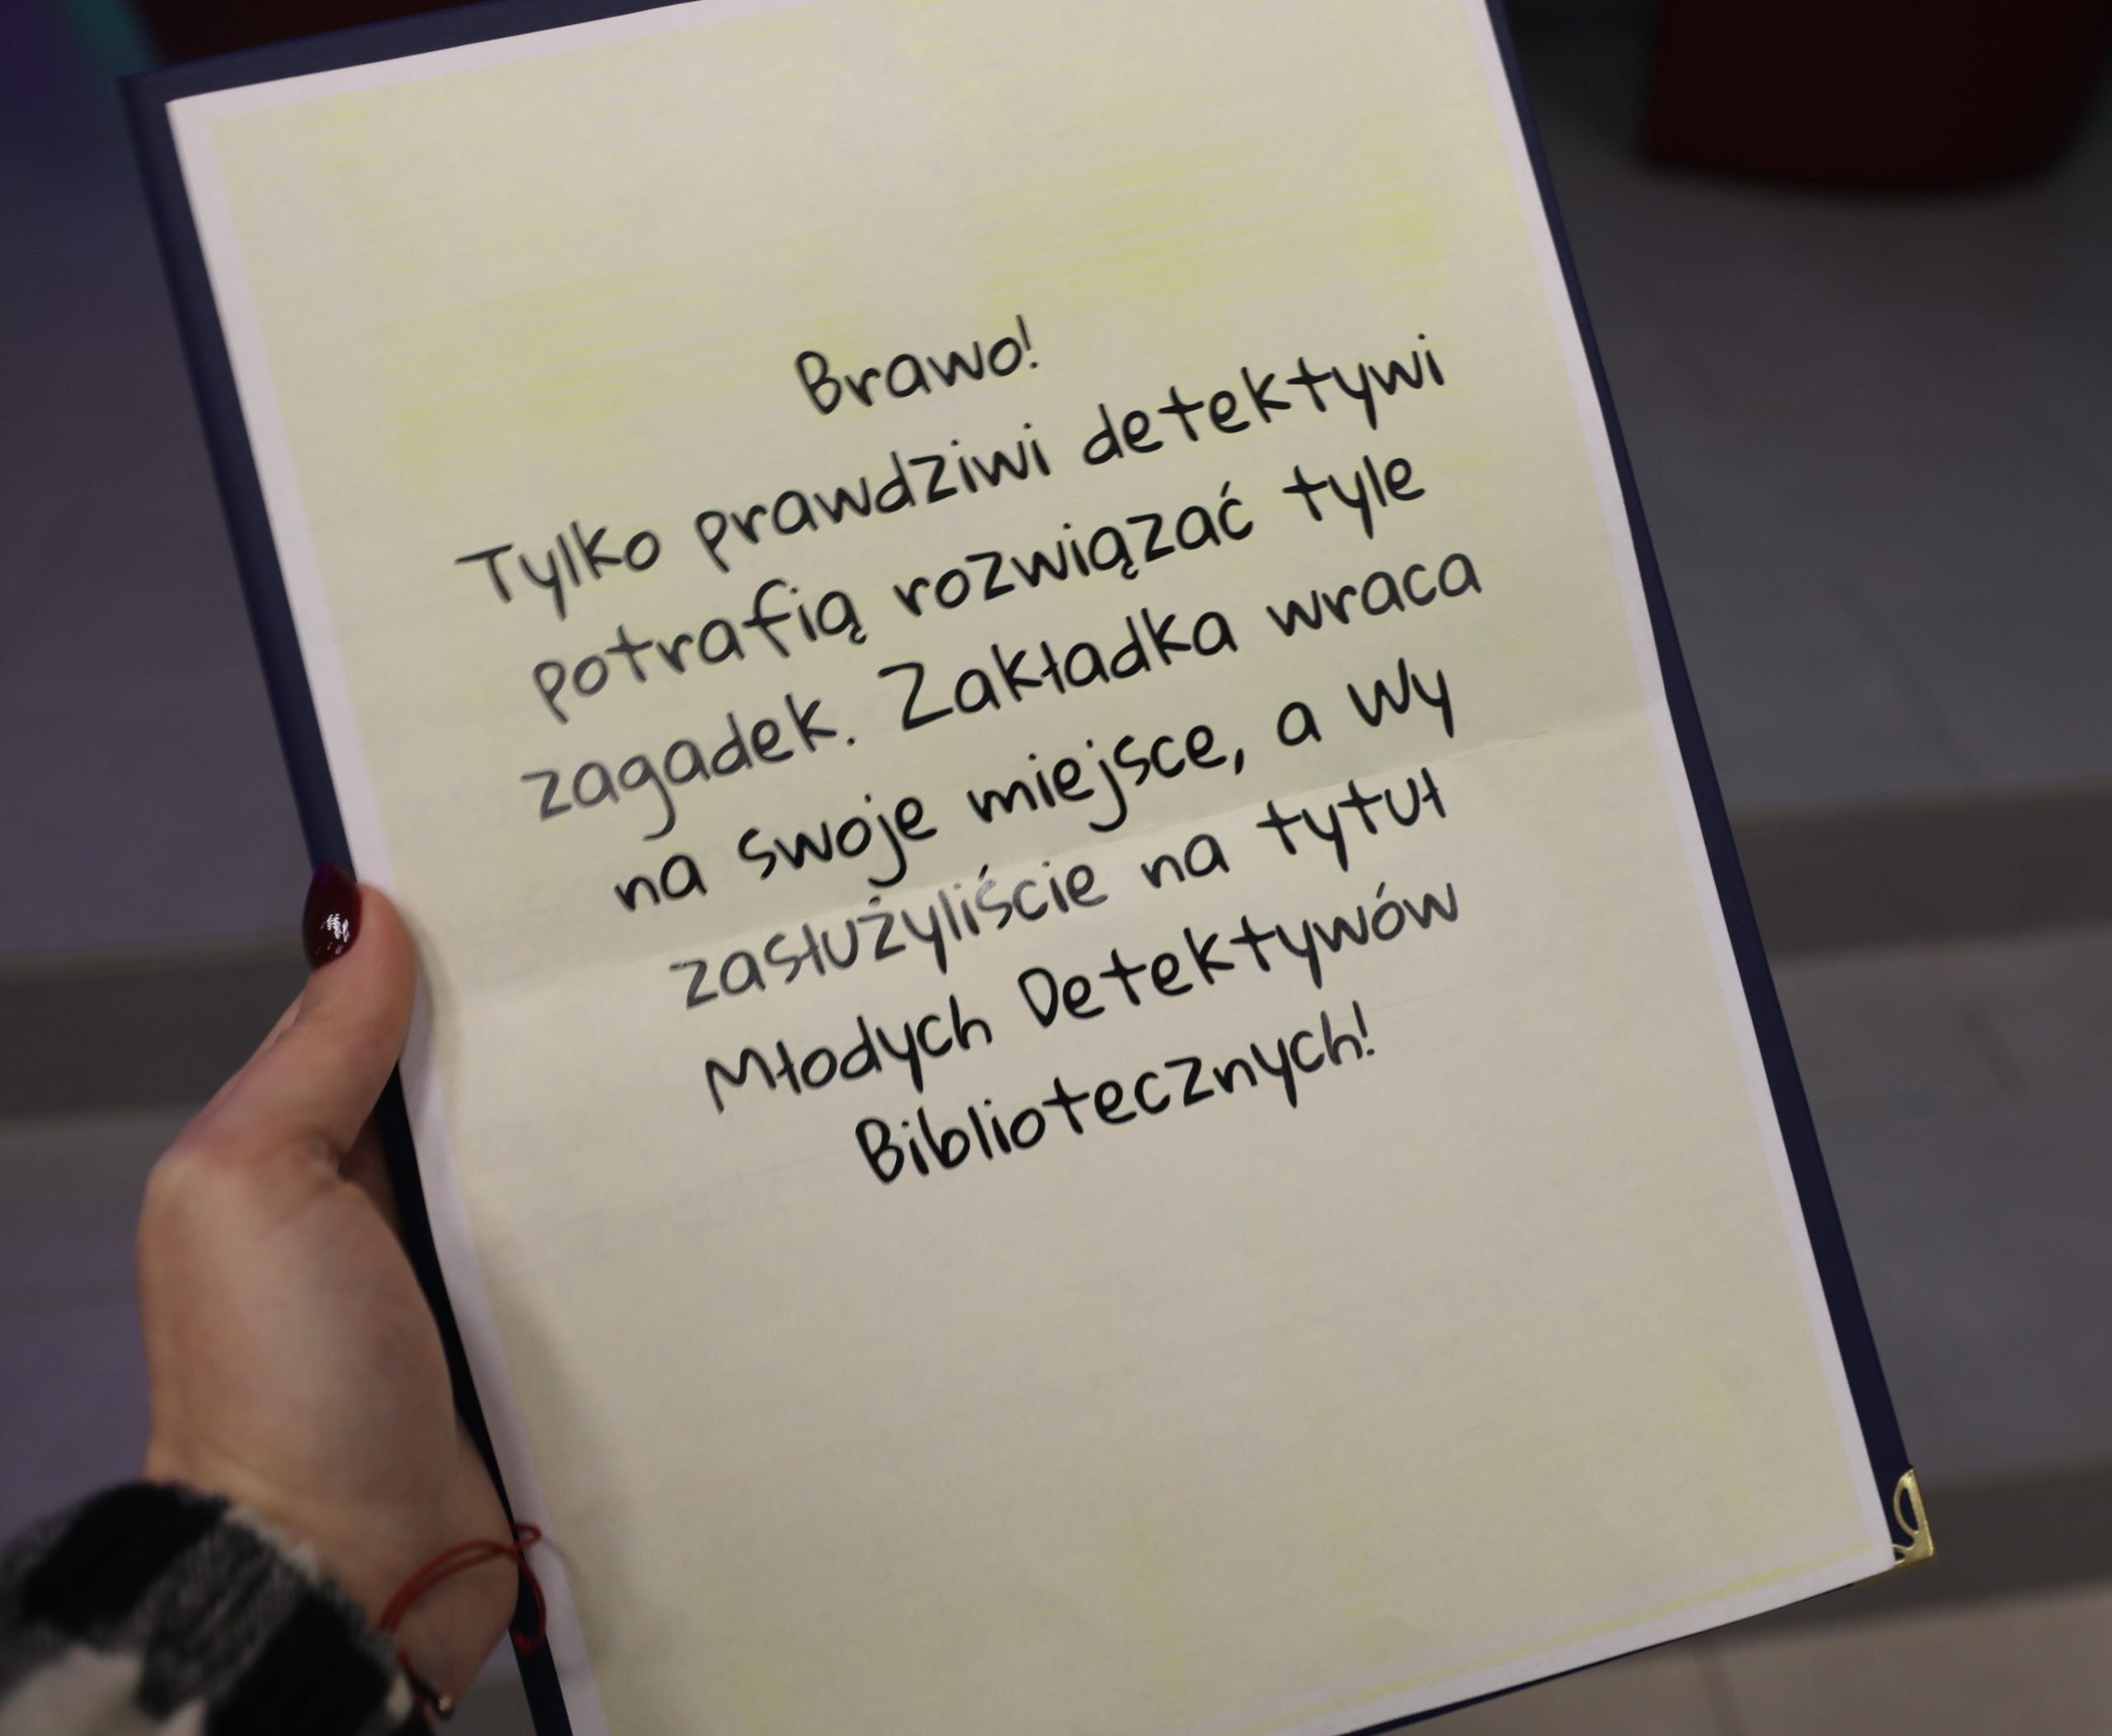 Brawo!
Tylko prawdziwi detektywi
potrafią rozwiązać tyle
zagadek. Zakładka wraca
na swoje miejsce, a Wy
zasłużyliście na tytuł
Młodych Detektywów
Bibliotecznych!